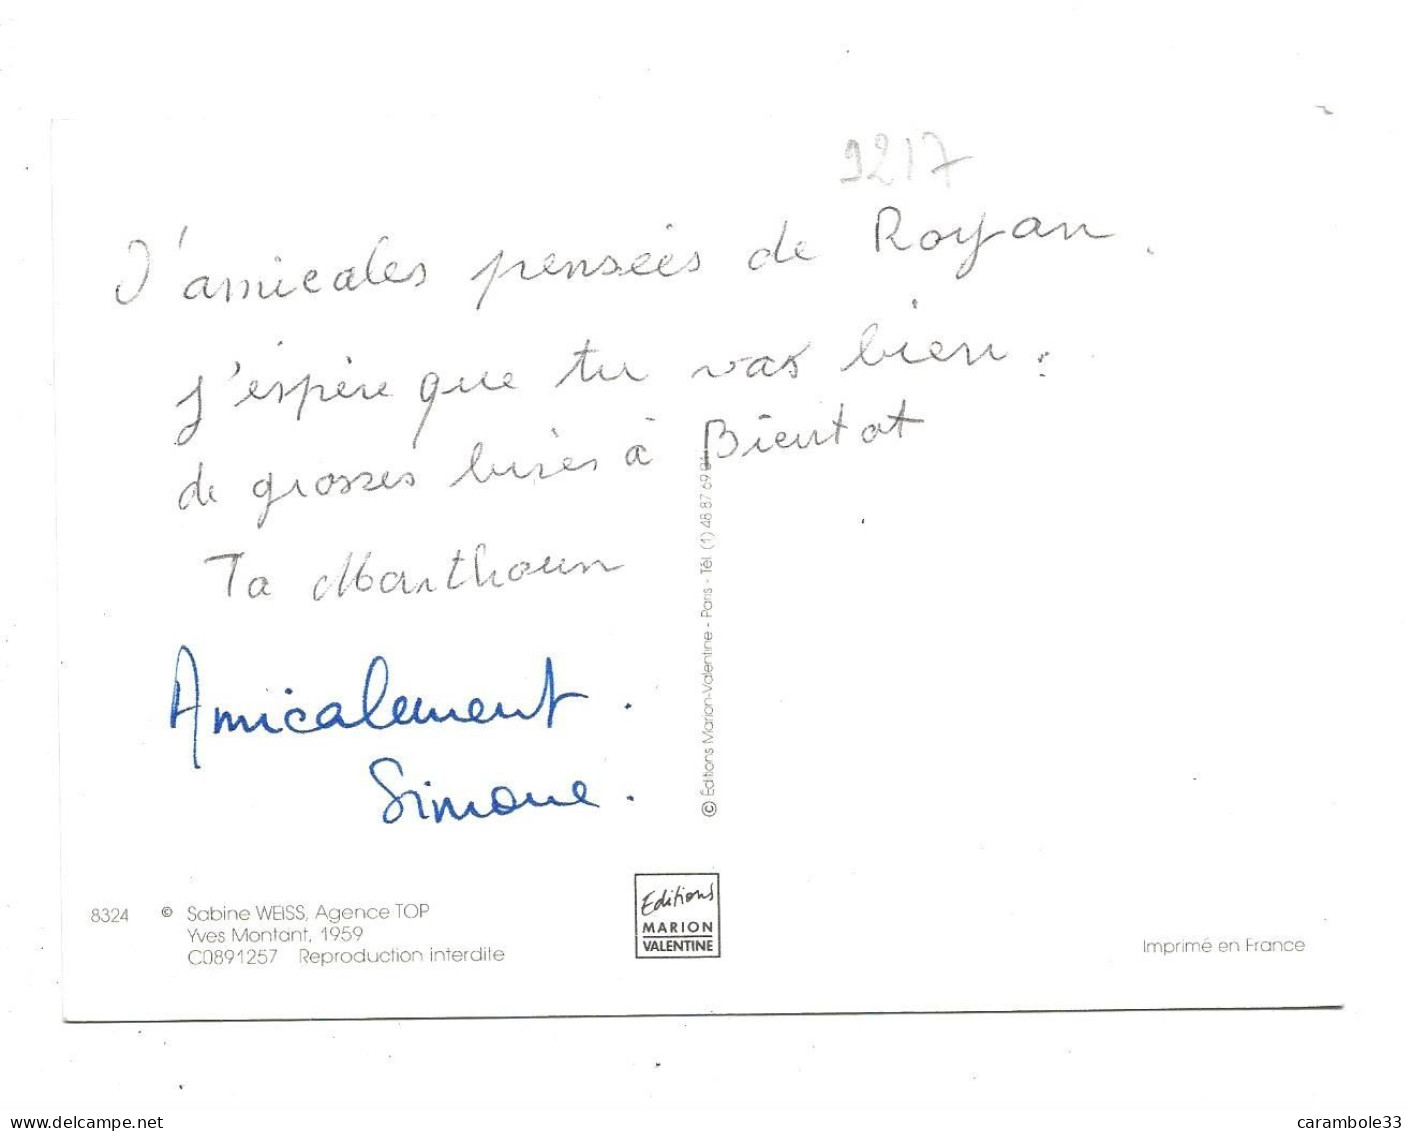 9217
D'amicales pensées de Royan.
j'éspère que tu vas bien.
de grosses bises à Bientot
Ta
Amicalement.
Simone.
© Editions Marion-Valentine - Paris - Tél. (1) 48 87 69
8324 © Sabine WEISS, Agence TOP
Yves Montant, 1959
C0891257 Reproduction interdite
Editions
MARION
VALENTINE
Imprimé en France
www.delcampe.net
carambole33